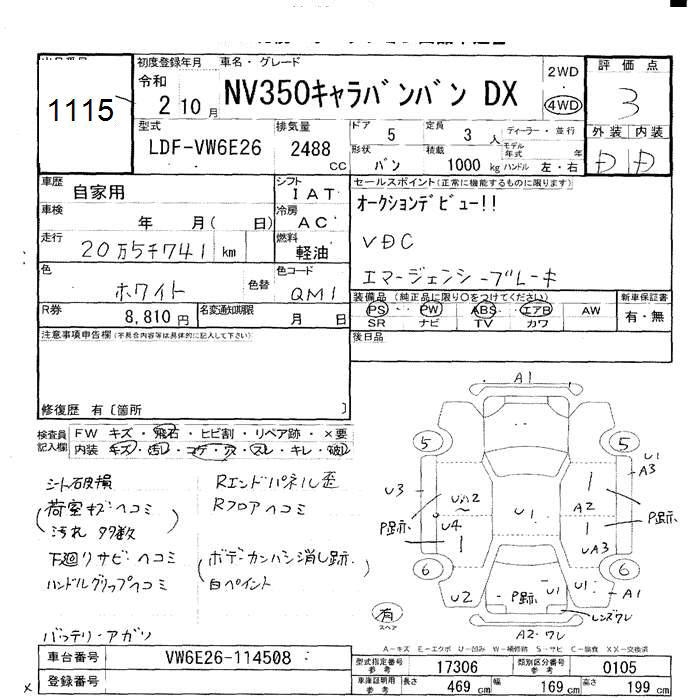 1115
初度登録年月 車名・グレード
令和
2 10月
NV350キャラバンバン DX
2WD
4WD
評価点
3
外装 内装
D D
型式 排気量 ドア 定員 ディーラー・並行
LDF-VW6E26 2488 CC
5 3人
モデル年式 年
形状 積載 ハンドル 左・右
バン 1000 kg
車歴 自家用
シフト IAT
車検 年 月( 日)
冷房 AC
走行 20万5千741 km
燃料 軽油
色 ホワイト 色替
色コード QM1
R券 8,810円
名変通知期限 月 日
セールスポイント(正常に機能するものに限ります)
オークションデビュー!!
VDC
エマージェンシーブレーキ
装備品(純正品に限り○をつけてください) 新車保証書
PS・ PW ABS エアB AW 有・無
SR ナビ TV カワ
後日品
注意事項申告欄(不具合内容等は具体的に記入して下さい)
修復歴 有〔箇所 〕
検査員記入欄
FW キズ・飛石・ヒビ割・リペア跡・×要
内装 キズ・汚レ・コゲ・穴・スレ・キレ・破レ
シート破損
(荷室キズヘコミ
汚れ多数)
下廻りサビヘコミ
ハンドルグリップヘコミ
バッテリーアガリ
Rエンドパネル歪
Rフロアヘコミ
(ボデーカンバン消し跡
白ペイント)
A1
5 5
U1
A3
U3
UA2
A2
P跡
P跡
U4
U1
P跡
UA3
6 6
U2
P跡
U1
U1
A1
レンズワレ
A2・ワレ
有
スペア
A−キズ E−エクボ U−凹み W−補修跡 S−サビ C−腐食 XX−交換済
車台番号 VW6E26-114508
登録番号
型式指定番号 参考 17306 類別区分番号 参考 0105
車庫証明用 参考 長さ 469 cm 幅 169 cm 高さ 199 cm